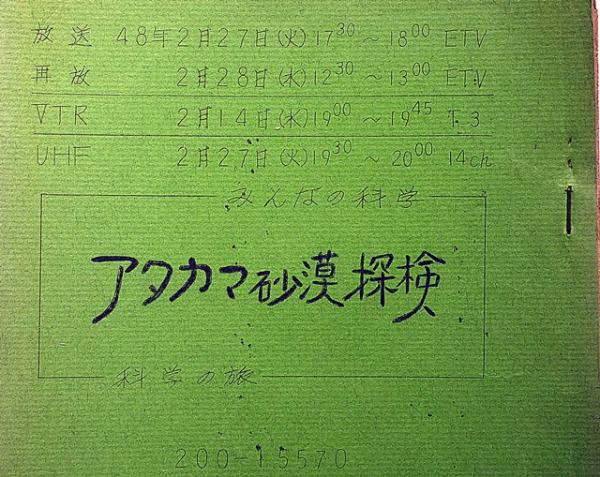 放送 48年2月27日(火)17³⁰～18⁰⁰ ETV
再放 2月28日(水)12³⁰～13⁰⁰ ETV
VTR 2月14日(水)19⁰⁰～19⁴⁵ T.3
UHF 2月27日(火)19³⁰～20⁰⁰ 14ch
みんなの科学
アタカマ砂漠探検
科学の旅
200-15570